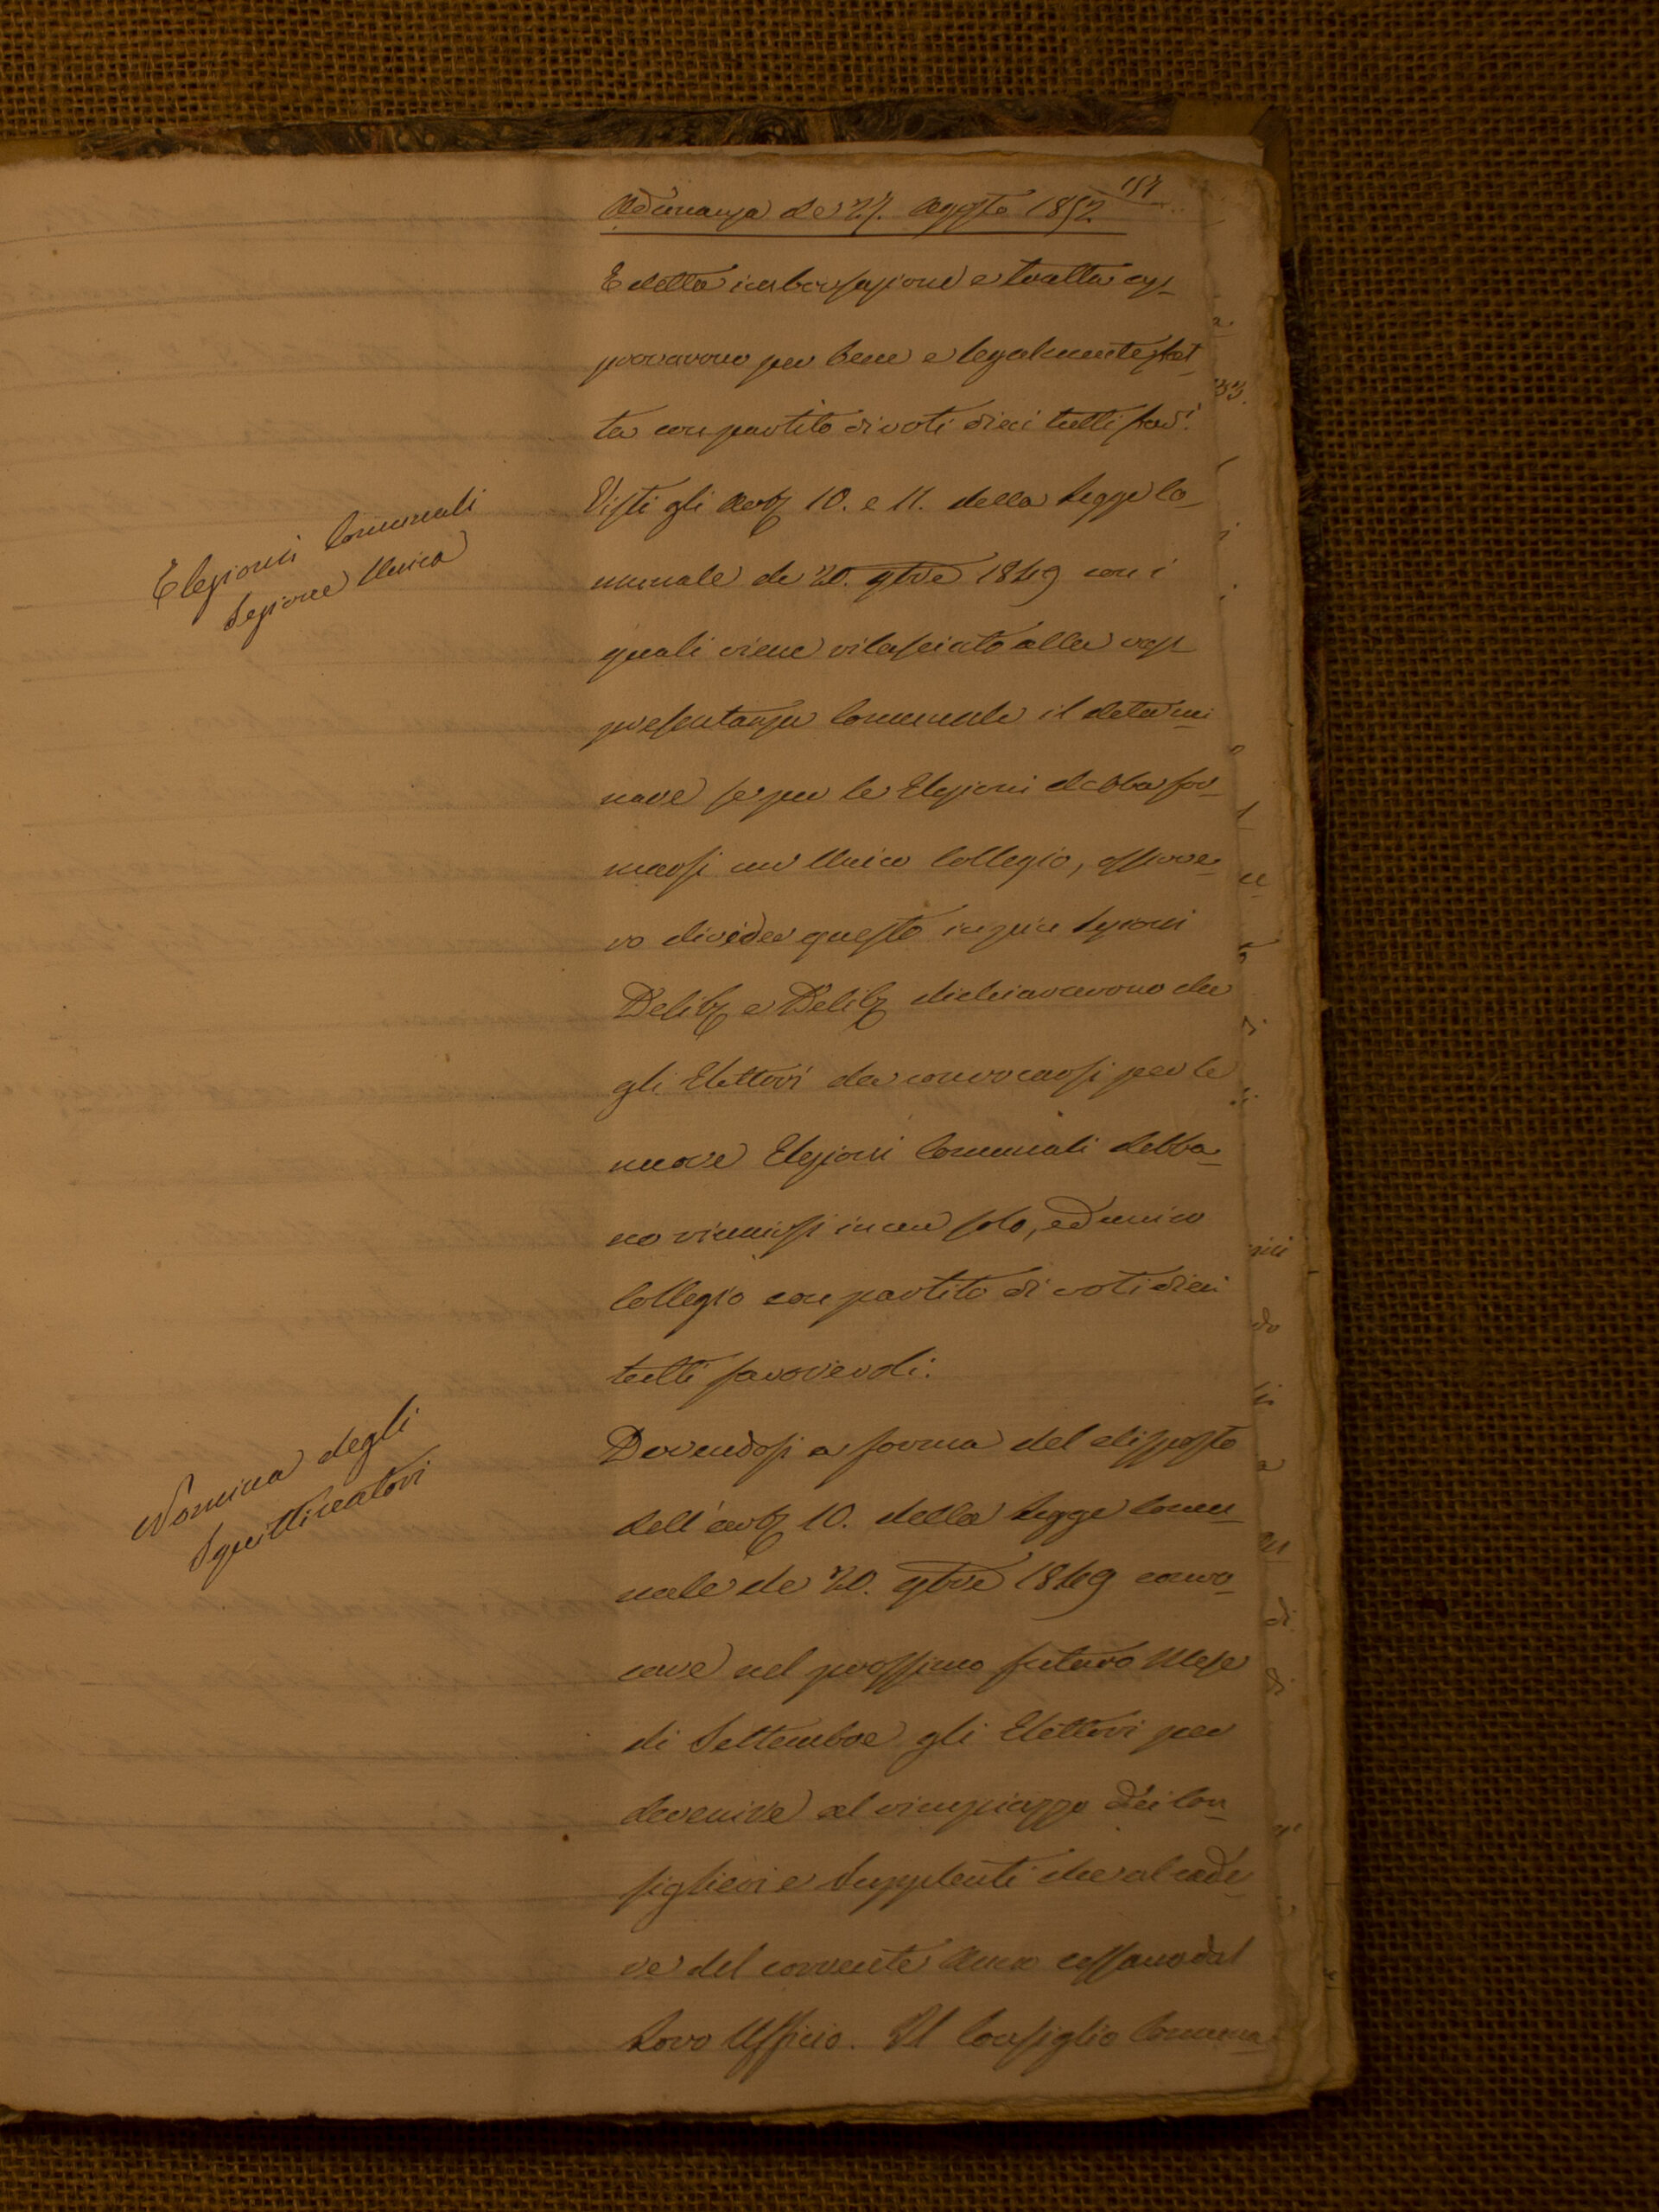 Adunanza de' 27. Agosto 1852.
E detta imborsazione e tratta ap_
provarono per bene e legalmente fat_
ta con partito di voti dieci tutti fav.i
Elezioni Comunali
Sezione Unica
Visti gli Art. 10. e 11. della Legge Co_
munale de 20. 9bre 1849 con i
quali viene rilasciato alla rap_
presentanza Comunale il determi_
nare se per le Elezioni debba for_
marsi un'Unico Collegio, oppure_
vo divider questo in più Sezioni
Delib. e Delib. dichiararono che
gli Elettori da convocarsi per le
nuove Elezioni Comunali debba_
no riunirsi in un solo, ed unico
Collegio con partito di voti dieci
tutti favorevoli.
Nomina degli
Squittinatori
Dovendosi a forma del disposto
dell'art. 10. della Legge Comu_
nale de' 20. 9bre 1849 convo_
care nel prossimo futuro Mese
di Settembre gli Elettori per
devenire al rimpiazzo dei Con_
siglieri e Supplenti che al cade_
re del corrente Anno cessano dal
Loro Ufficio. Il Consiglio Comuna_